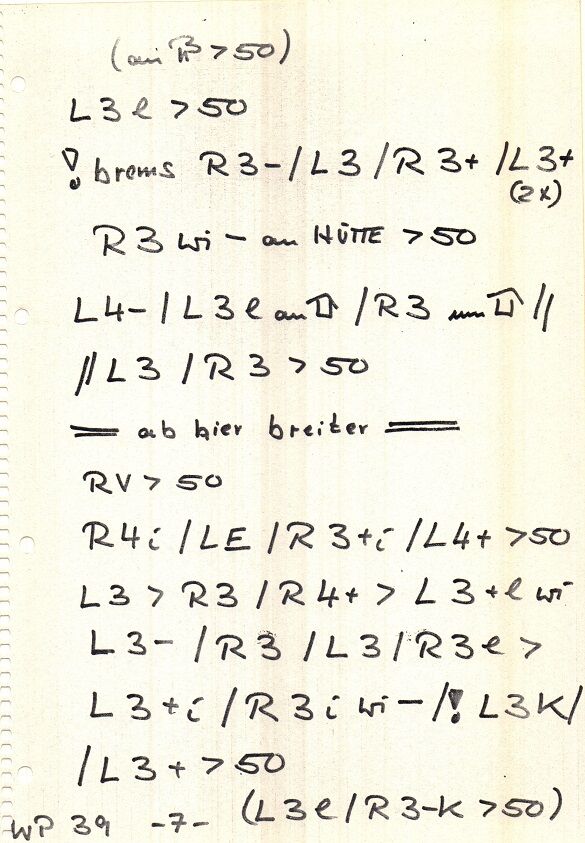 (am > 50)
L3l > 50
! brems R3-/L3/R3+/L3+
(2x)
R3 wi - an HÜTTE > 50
L4-/L3l an /R3 um //
//L3/R3 > 50
= ab hier breiter =
RV > 50
R4i/LE/R3+i/L4+ > 50
L3 > R3/R4+ > L3+l wi
L3-/R3/L3/R3l >
L3+i/R3i wi -/! L3K/
/L3+ > 50
(L3l/R3-K > 50)
WP 39 -7-